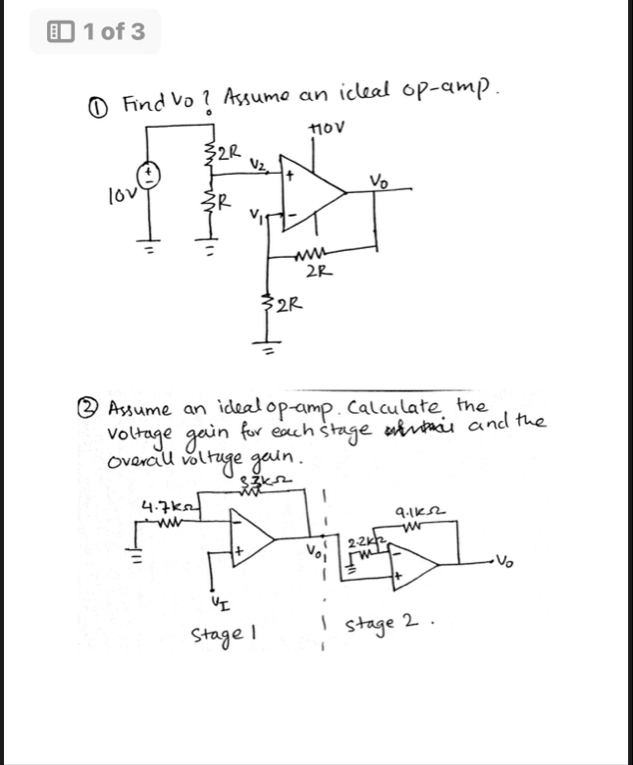 1 of 3
① Find Vo ? Assume an ideal op-amp.
+10V
2R
V2
+
Vo
10V
R
V1
-
2R
2R
② Assume an ideal op-amp. Calculate the
voltage gain for each stage and the
overall voltage gain.
3.3kΩ
4.7kΩ
9.1kΩ
-
2.2kΩ
+
Vo1
-
Vo
+
VI
Stage 1
stage 2 .